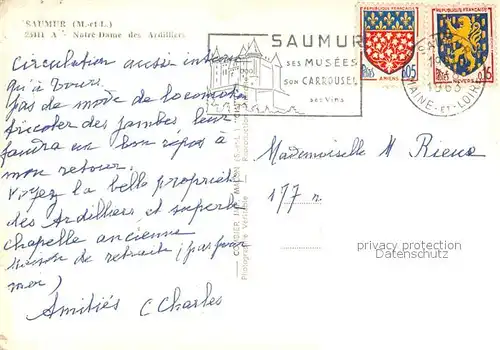 SAUMUR (M.-et-L.)
25411 A - Notre-Dame des Ardilliers
Circulation aussi intense
qu'à Tours.
pas de mode de locomotion
tricoter des jambes leur
faudra un bon repos à
mon retour.
Voyez la belle propriété
des Ardilliers et superbe
chapelle ancienne
maison de retraite (pas pour
moi)
Amitiés C Charles
SAUMUR
ses MUSÉES
son CARROUSEL
ses VINS
REPUBLIQUE FRANÇAISE
POSTES 0,05
AMIENS
REPUBLIQUE FRANÇAISE
0,15
NEVERS
SAUMUR
1963
MAINE-ET-LOIRE
Photographie Véritable
Mademoiselle M Rieux
177 r.
protection watermark
© oldthing.de